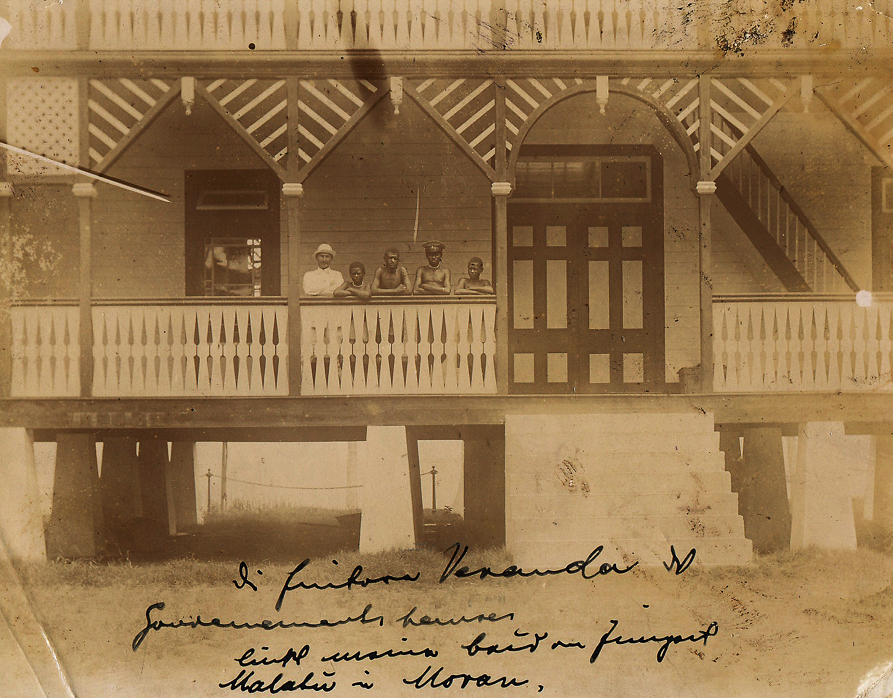 Di hintere Veranda ds
Gouvernements hauses
links meine beiden
Malatu u Moran.